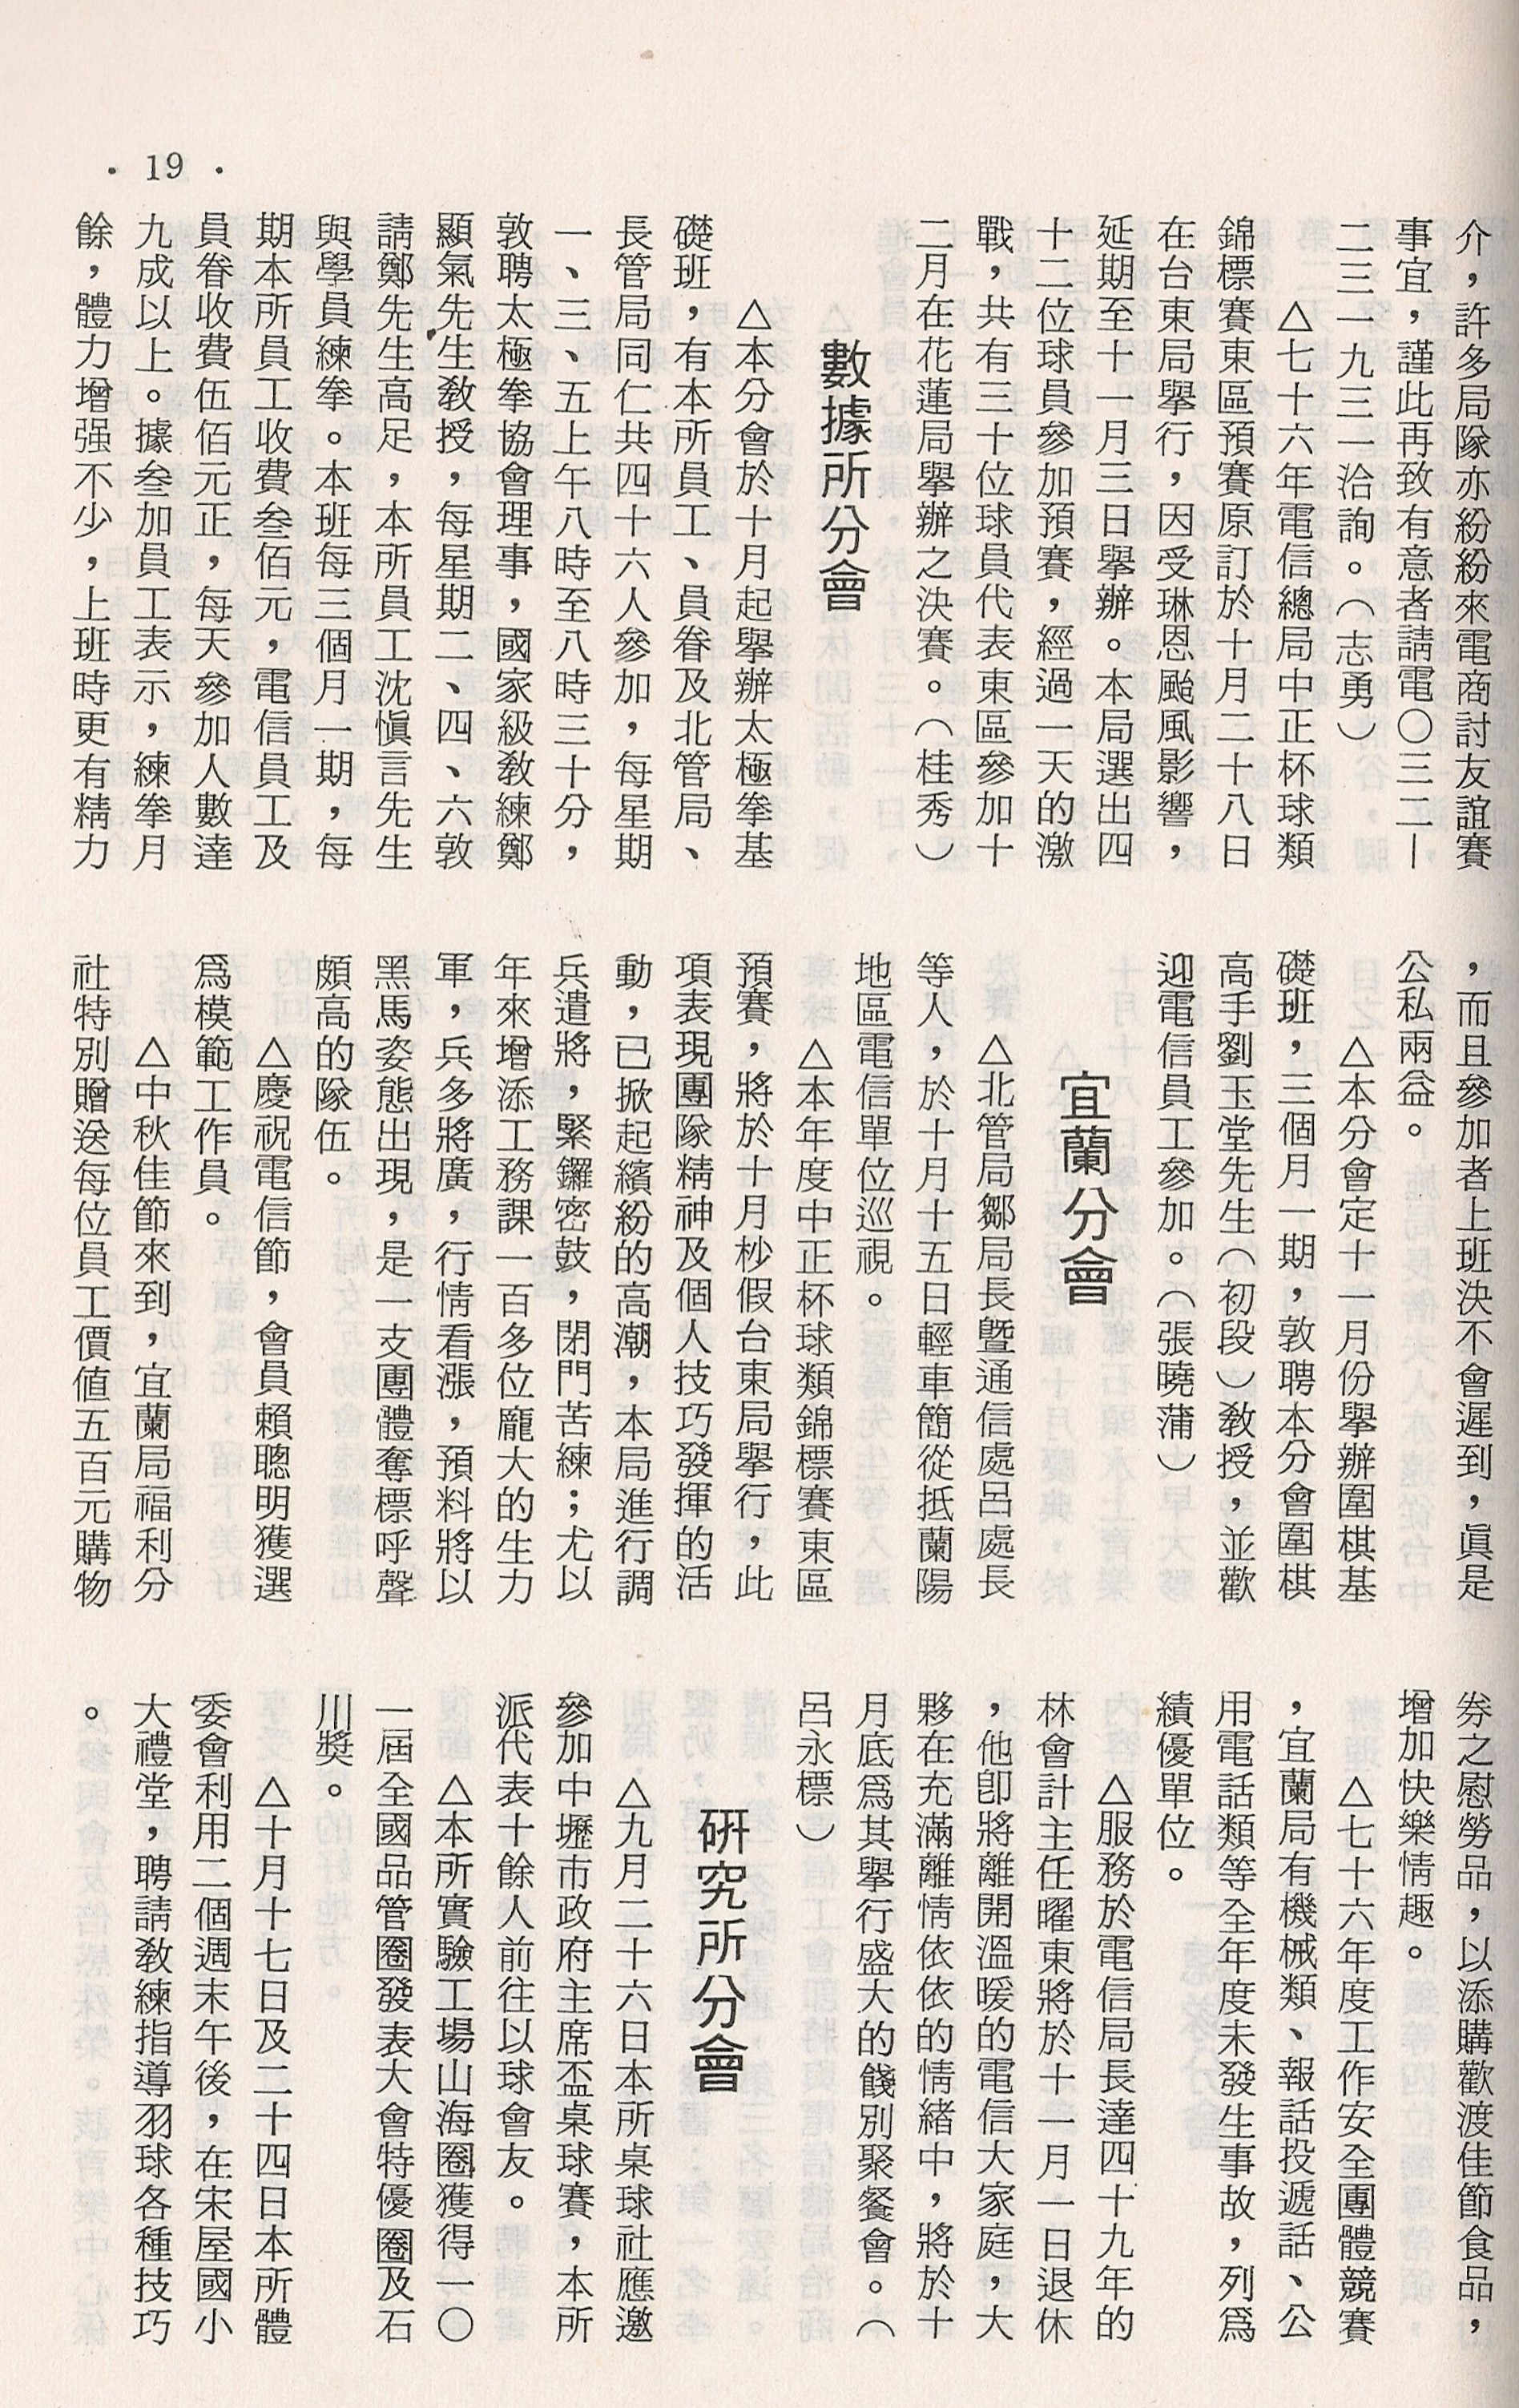 · 19 ·
介，許多局隊亦紛紛來電商討友誼賽
事宜，謹此再致有意者請電〇三二—
二三一九三一洽詢。（志勇）
△七十六年電信總局中正杯球類
錦標賽東區預賽原訂於十月二十八日
在台東局舉行，因受琳恩颱風影響，
延期至十一月三日舉辦。本局選出四
十二位球員參加預賽，經過一天的激
戰，共有三十位球員代表東區參加十
二月在花蓮局舉辦之決賽。（桂秀）
數據所分會
△本分會於十月起舉辦太極拳基
礎班，有本所員工、員眷及北管局、
長管局同仁共四十六人參加，每星期
一、三、五上午八時至八時三十分，
敦聘太極拳協會理事，國家級教練鄭
顯氣先生教授，每星期二、四、六敦
請鄭先生高足，本所員工沈愼言先生
與學員練拳。本班每三個月一期，每
期本所員工收費叁佰元，電信員工及
員眷收費伍佰元正，每天參加人數達
九成以上。據叁加員工表示，練拳月
餘，體力增强不少，上班時更有精力
，而且參加者上班決不會遲到，眞是
公私兩益。
△本分會定十一月份舉辦圍棋基
礎班，三個月一期，敦聘本分會圍棋
高手劉玉堂先生（初段）教授，並歡
迎電信員工參加。（張曉蒲）
宜蘭分會
△北管局鄒局長暨通信處呂處長
等人，於十月十五日輕車簡從抵蘭陽
地區電信單位巡視。
△本年度中正杯球類錦標賽東區
預賽，將於十月杪假台東局舉行，此
項表現團隊精神及個人技巧發揮的活
動，已掀起繽紛的高潮，本局進行調
兵遣將，緊鑼密鼓，閉門苦練；尤以
年來增添工務課一百多位龐大的生力
軍，兵多將廣，行情看漲，預料將以
黑馬姿態出現，是一支團體奪標呼聲
頗高的隊伍。
△慶祝電信節，會員賴聰明獲選
爲模範工作員。
△中秋佳節來到，宜蘭局福利分
社特別贈送每位員工價值五百元購物
券之慰勞品，以添購歡渡佳節食品，
增加快樂情趣。
△七十六年度工作安全團體競賽
，宜蘭局有機械類、報話投遞話、公
用電話類等全年度未發生事故，列爲
績優單位。
△服務於電信局長達四十九年的
林會計主任曜東將於十一月一日退休
，他卽將離開溫暖的電信大家庭，大
夥在充滿離情依依的情緒中，將於十
月底爲其舉行盛大的餞別聚餐會。（
呂永標）
硏究所分會
△九月二十六日本所桌球社應邀
參加中壢市政府主席盃桌球賽，本所
派代表十餘人前往以球會友。
△本所實驗工場山海圈獲得一〇
一屆全國品管圈發表大會特優圈及石
川獎。
△十月十七日及二十四日本所體
委會利用二個週末午後，在宋屋國小
大禮堂，聘請教練指導羽球各種技巧
。